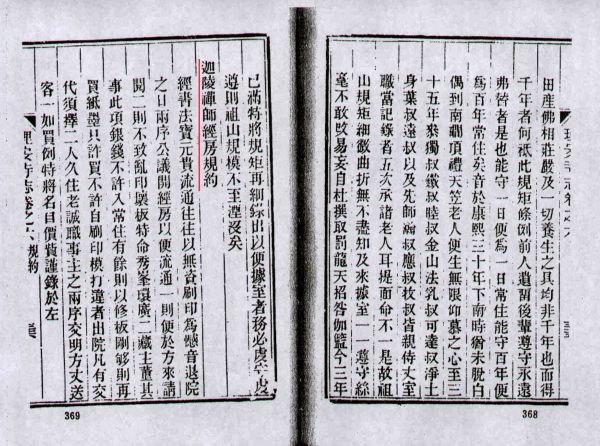 田產佛相莊嚴及一切養生之具均非千年也而得
千年者何祗此規矩條例前人遺留後輩尊守永遠
弗替者是也能守一日便為一日常住能守百年便
為百年常住矣音於康熙三十年下南時猶未脫白
偶到南澗頂禮天笠老人便生無限仰慕之心至三
十五年
叔金山法乳叔可達叔淨土
身葉叔遠叔以及先師
叔皆親侍丈室
職當記錄者五次承諸老人耳提面命不一是故祖
山規矩細微曲折無不盡知及來據室一一尊守絲
毫不敢改易妄自杜撰取罰龍天招咎伽藍今三年
理安寺志卷之六
368
已滿特將規矩再細錄出以便據室者務必虔守
遵則祖山規模不至湮沒矣
迦陵禪師經房規約
經書法寶元貴流通往往以無資刷印為憾音退院
之日兩序公議開經房以便流通一則便於方來請
閱二則不致亂印壞板特命秀峯環廣二藏主董其
事此項銀錢不許入常住有餘則以修板剛够則再
買紙墨只許買不許自刷印模打違者出院凡有交
代須擇二人久住老誠職事主之兩序交明方丈送
客一如買例特將名目價貲謹錄於左
理安寺志卷之六 規約
369